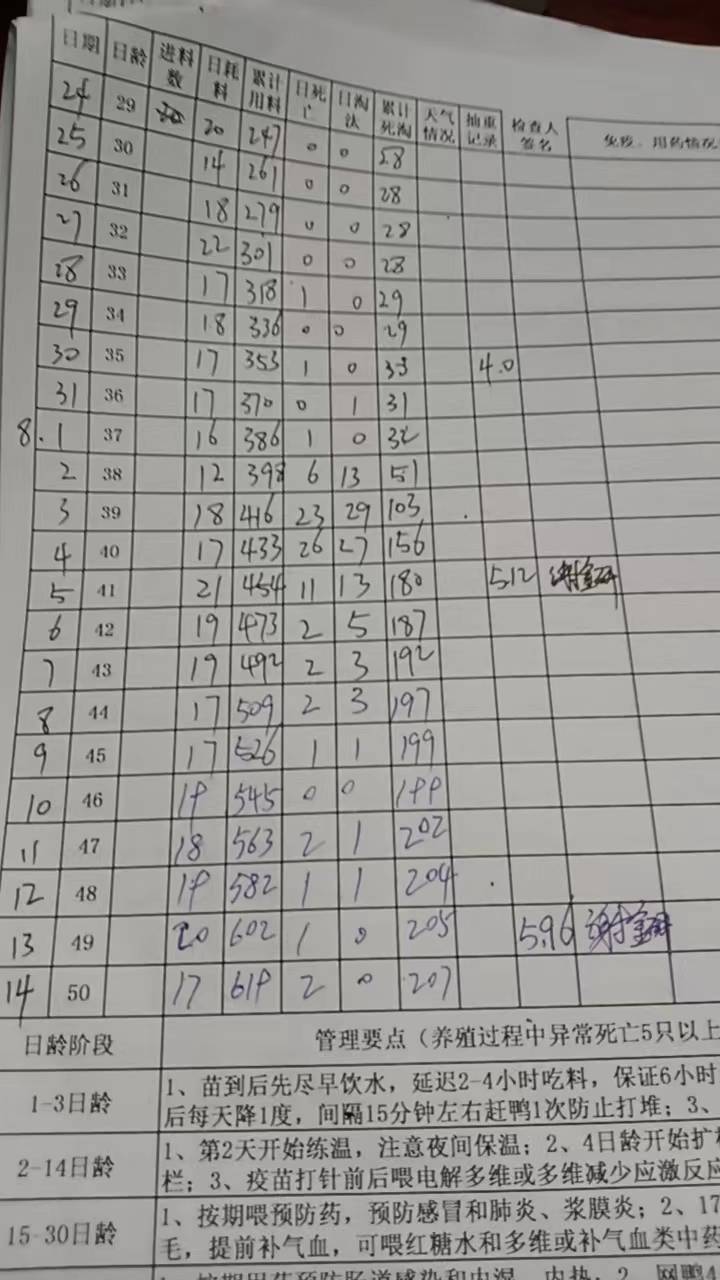 日期 日龄 进料数 日耗料 累计用料 日死亡 日淘汰 累计死淘 天气情况 抽重记录 检查人签名 免疫、用药情况
24 29 20 247 0 0 28
25 30 14 261 0 0 28
26 31 18 279 0 0 28
27 32 22 301 0 0 28
28 33 17 318 1 0 29
29 34 18 336 0 0 29
30 35 17 353 1 0 33 4.0
31 36 17 370 0 1 31
8.1 37 16 386 1 0 32
2 38 12 398 6 13 51
3 39 18 416 23 29 103
4 40 17 433 26 27 156
5 41 21 454 11 13 180 512
6 42 19 473 2 5 187
7 43 19 492 2 3 192
8 44 17 509 2 3 197
9 45 17 526 1 1 199
10 46 19 545 0 0 199
11 47 18 563 2 1 202
12 48 19 582 1 1 204
13 49 20 602 1 0 205 596
14 50 17 619 2 0 207
日龄阶段 管理要点（养殖过程中异常死亡5只以上
1-3日龄 1、苗到后先尽早饮水，延迟2-4小时吃料，保证6小时
后每天降1度，间隔15分钟左右赶鸭1次防止打堆；3、
2-14日龄 1、第2天开始练温，注意夜间保温；2、4日龄开始扩
栏；3、疫苗打针前后喂电解多维或多维减少应激反应
15-30日龄 1、按期喂预防药，预防感冒和肺炎、浆膜炎；2、17
毛，提前补气血，可喂红糖水和多维或补气血类中药